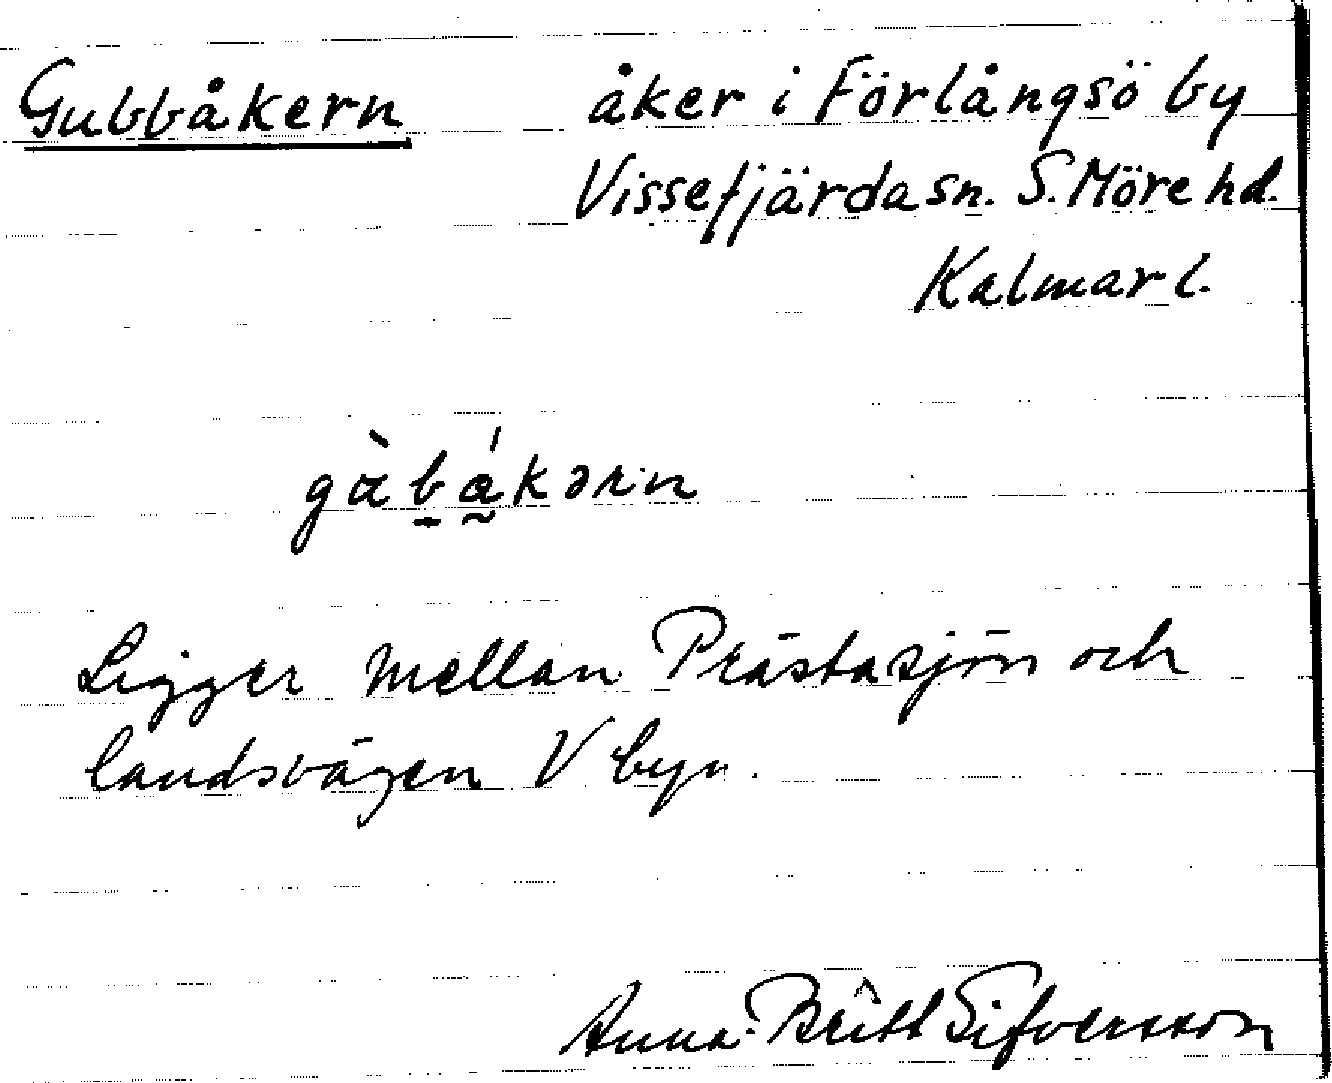 Gubbåkern åker i Förlångsö by
Vissefjärda sn. S. Möre hd.
Kalmar l.
gàb̠á̰kərn
Ligger mellan Prästasjön och
landsvägen V byn.
Anna-Britt Sifversson